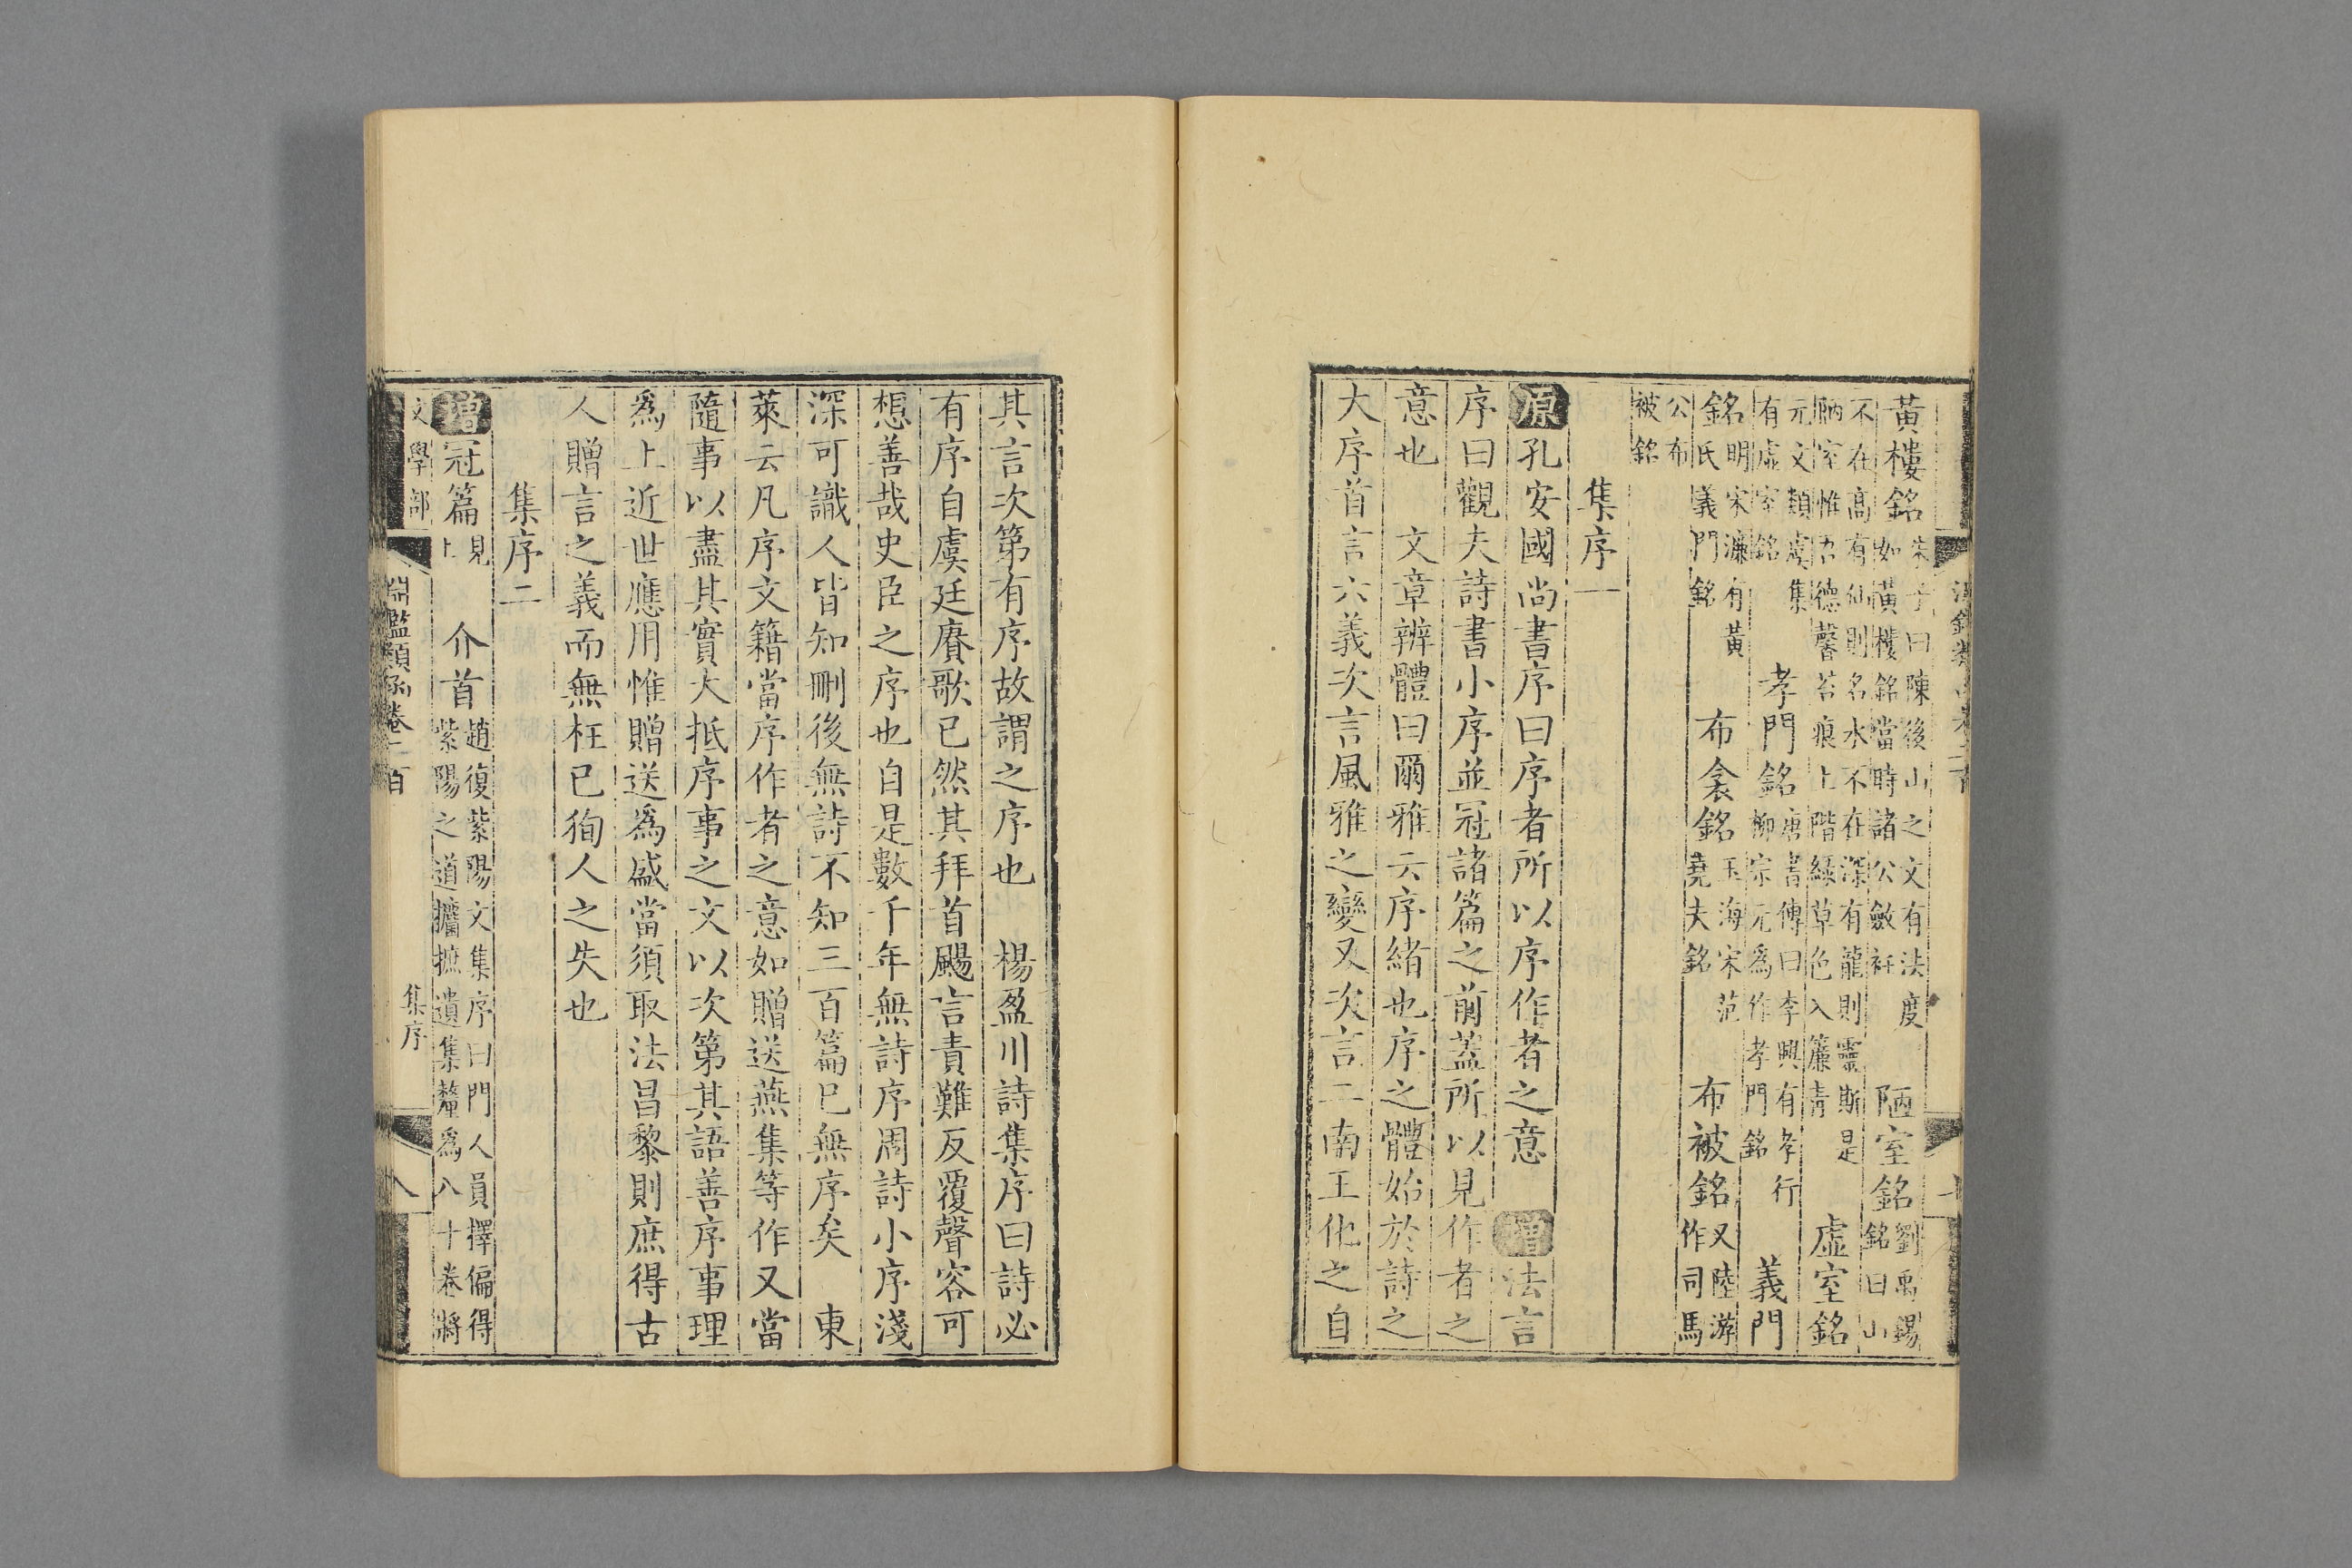 黃樓銘朱子曰陳後山之文有法度如黃樓銘當時諸公斂衽 陋室銘劉禹錫銘曰山
不在高有仙則名水不在深有龍則靈斯是陋室惟吾德馨苔痕上階綠草色入簾青 虛室銘
元文類虞集有虛室銘 孝門銘唐書傳曰李興有孝行柳宗元爲作孝門銘 義門
銘明宋濂有黃氏義門銘 布衾銘玉海宋范堯夫銘 布被銘又陸游作司馬
公布被銘
集序一
原孔安國尚書序曰序者所以序作者之意 增法言
序曰觀夫詩書小序並冠諸篇之前蓋所以見作者之
意也 文章辨體曰爾雅云序緒也序之體始於詩之
大序首言六義次言風雅之變又次言二南王化之自
其言次第有序故謂之序也 楊盈川詩集序曰詩必
有序自虞廷賡歌已然其拜首颺言責難反覆聲容可
想善哉史臣之序也自是數千年無詩序周詩小序淺
深可識人皆知刪後無詩不知三百篇已無序矣 東
萊云凡序文籍當序作者之意如贈送燕集等作又當
隨事以盡其實大抵序事之文以次第其語善序事理
爲上近世應用惟贈送爲盛當須取法昌黎則庶得古
人贈言之義而無枉已狥人之失也
集序二
增冠篇見上 介首趙復紫陽文集序曰門人員擇偏得紫陽之道攟摭遺集釐爲八十卷將
文學部
淵鑑類函卷二百
集序
八